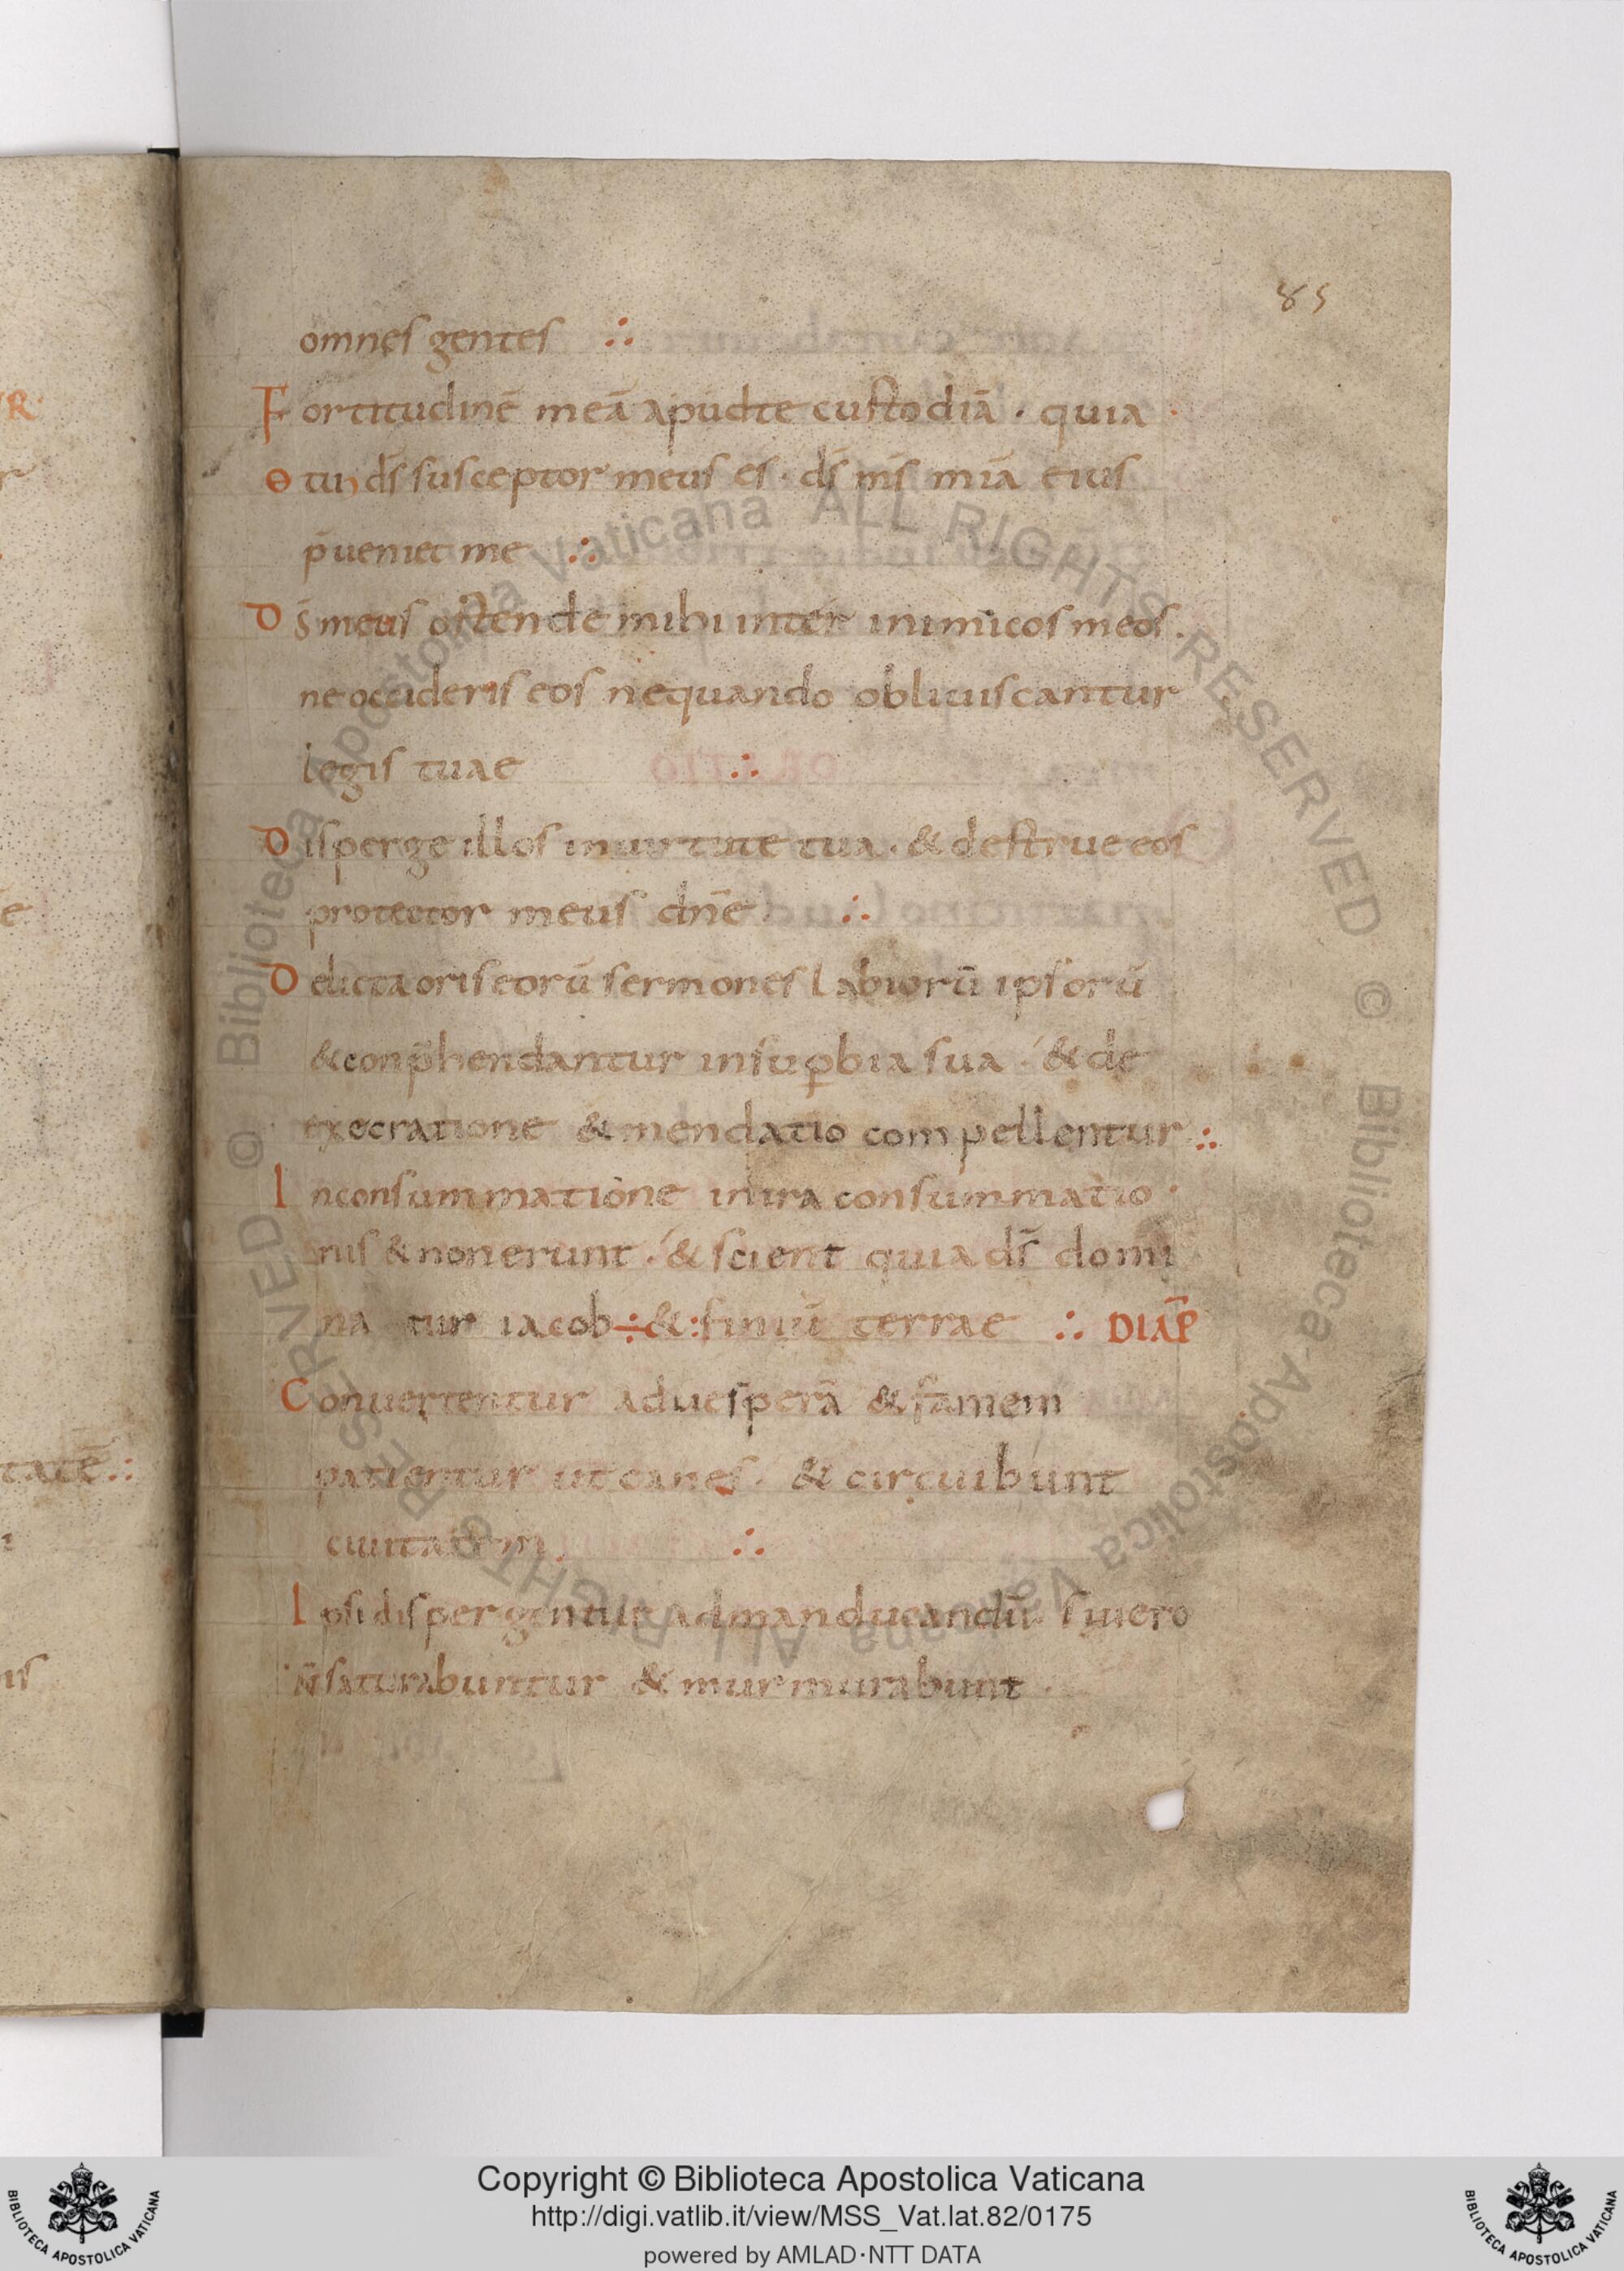 85
omnes gentes ∴
Fortitudinē meā apudte custodiā · quia ·
tu ds̄ susceptor meus es · ds̄ ms̄ mia̅ eius
p̄ueniet me ∴
Ds̄ meus ostende mihi inter inimicos meos .
ne occideris eos nequando obliuiscantur
legis tuae ∴
Disperge illos inuirtute tua · & destrue eos
protector meus dn̄e ∴
Delicta oris eorū sermones labiorū ipsorū
& conp̄hendantur insuꝑbia sua · & de
execratione & mendatio compellentur ∴
Inconsummatione inira consummatio ·
nis & nonerunt · & scient quia ds̄ domi
na tur iacob ÷ & : finiū terrae ∴ DIAP̄
Conuertentur aduesperā & famem
patientur ut canes · & circuibunt
ciuitatem . ∴
Ipsi dispergentur admanducandū · siuero
n̄ saturabuntur & murmurabunt ·
tatē ∴
Copyright © Biblioteca Apostolica Vaticana
http://digi.vatlib.it/view/MSS_Vat.lat.82/0175
powered by AMLAD·NTT DATA
BIBLIOTECA APOSTOLICA VATICANA
BIBLIOTECA APOSTOLICA VATICANA
© Biblioteca Apostolica Vaticana ALL RIGHTS RESERVED © Biblioteca Apostolica Vaticana ALL RIGHTS RESERVED